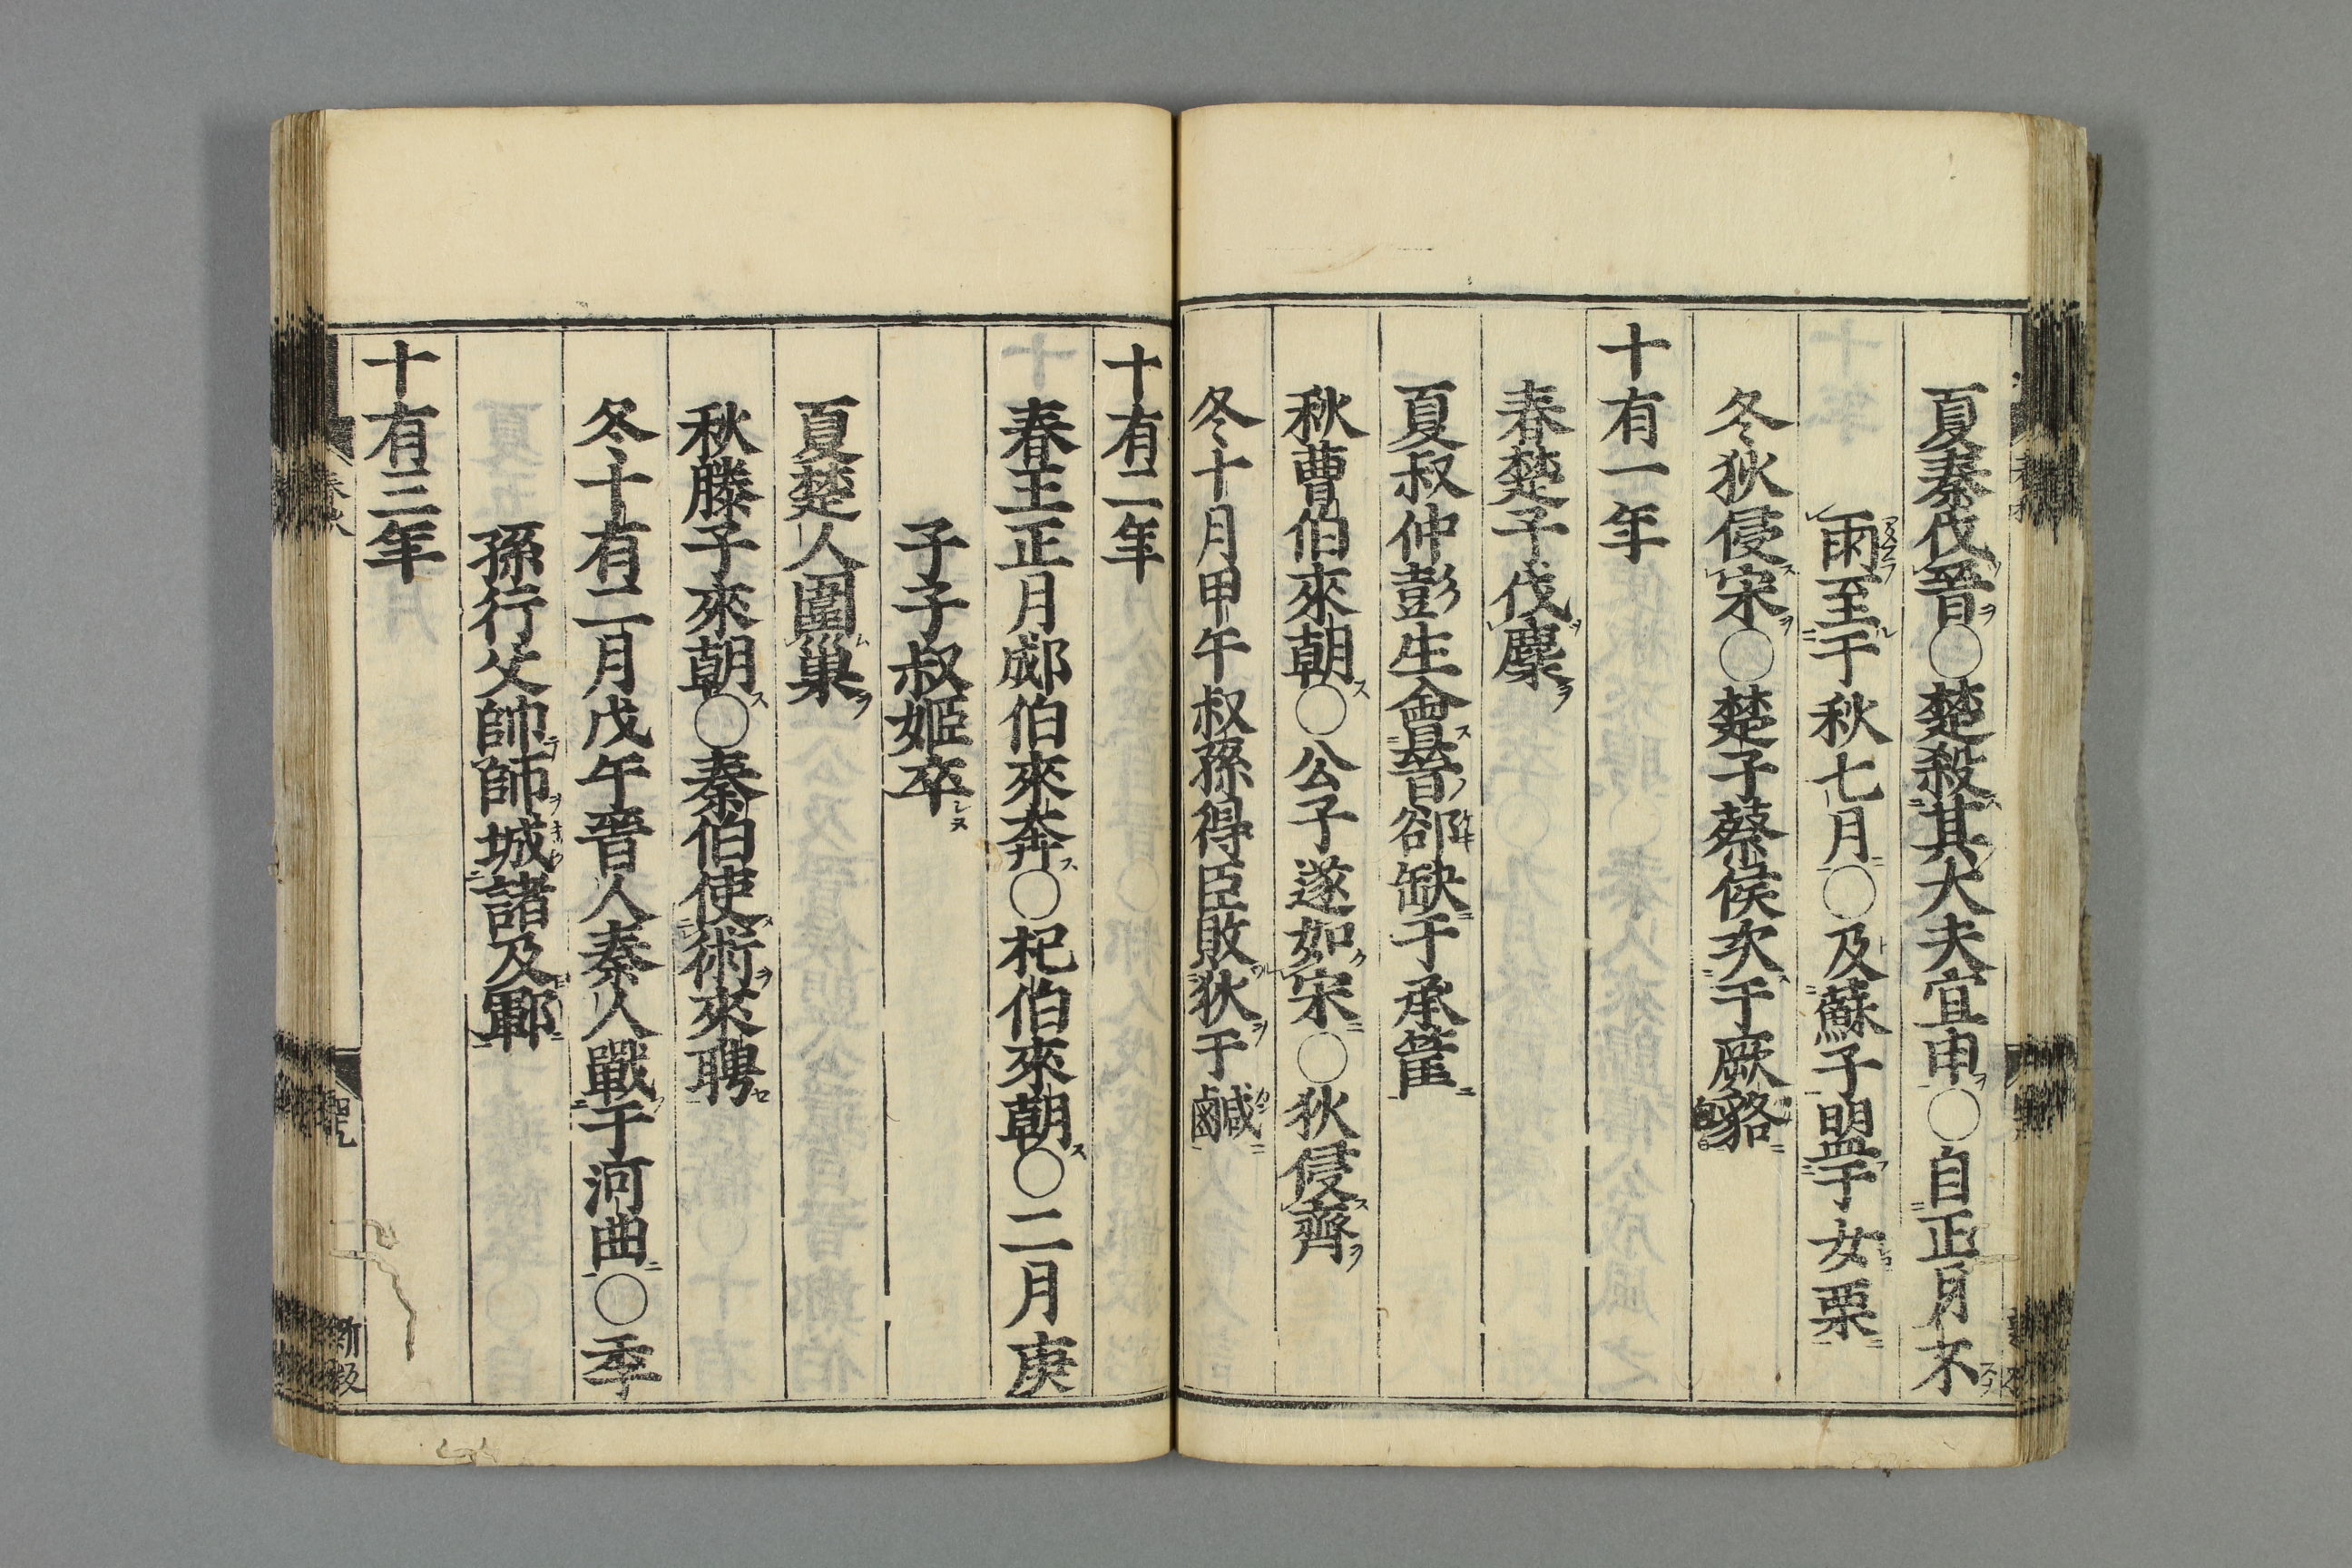 夏秦伐晉○楚殺其大夫宜申○自正月不
雨至于秋七月○及蘇子盟于女栗
冬狄侵宋○楚子蔡侯次于厥貉
十有一年
春楚子伐麇
夏叔仲彭生會晉郤缺于承筐
秋曹伯來朝○公子遂如宋○狄侵齊
冬十月甲午叔孫得臣敗狄于鹹
十有二年
春王正月郕伯來奔○杞伯來朝○二月庚
子子叔姬卒
夏楚人圍巢
秋滕子來朝○秦伯使術來聘
冬十有二月戊午晉人秦人戰于河曲○季
孫行父帥師城諸及鄆
十有三年